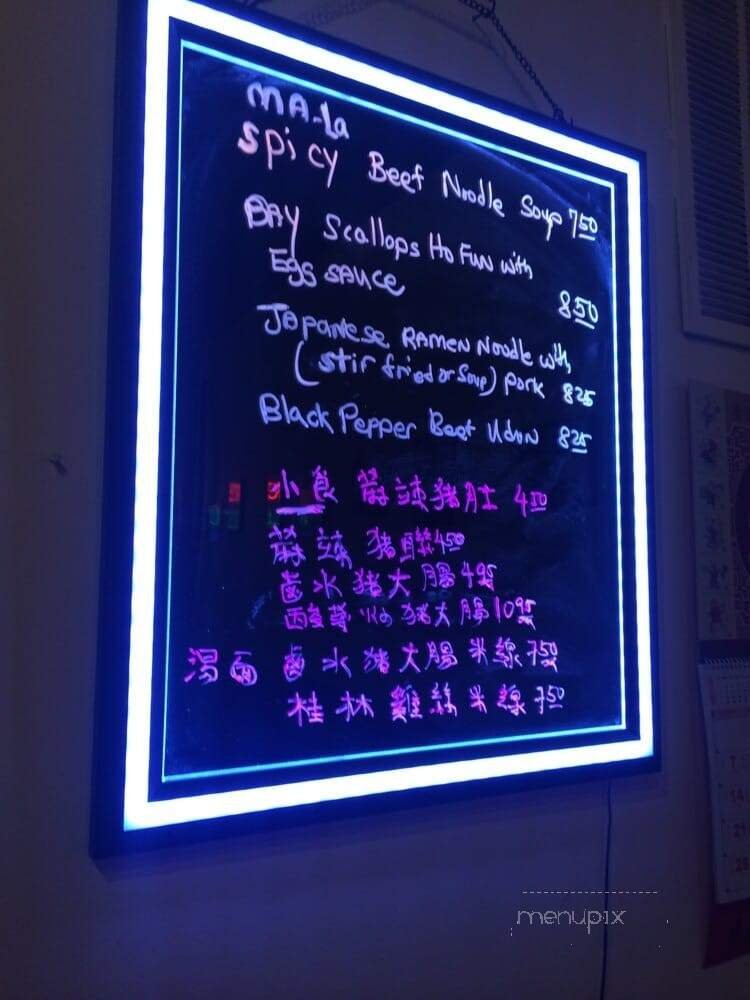 MA-La
Spicy Beef Noodle Soup 7 50
BAY Scallops Ho FUN with
Egg SAUCE
8 50
Japanese RAMEN Noodle with
(stir fried or Soup) pork 8 25
Black Pepper Beef Udon 8 25
小食 蔴辣猪肚 4 50
蔴辣 猪 4 50
鹵水猪大腸 4 95
酸菜炒猪大腸 10 95
湯面 鹵水猪大腸米線 7 50
桂林雞絲米線 7 50
menupix